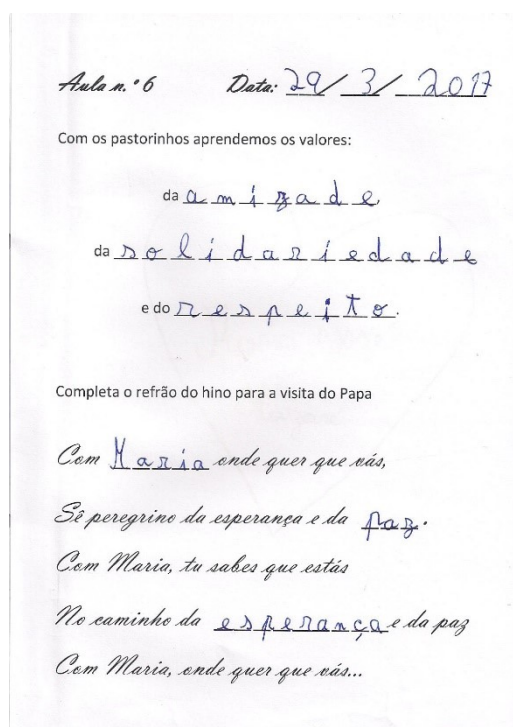 Aula n.º 6 Data: 29/ 3/ 2017
Com os pastorinhos aprendemos os valores:
da amizade,
da solidariedade
e do respeito.
Completa o refrão do hino para a visita do Papa
Com Maria onde quer que vás,
Sê peregrino da esperança e da paz.
Com Maria, tu sabes que estás
No caminho da esperança e da paz
Com Maria, onde quer que vás...